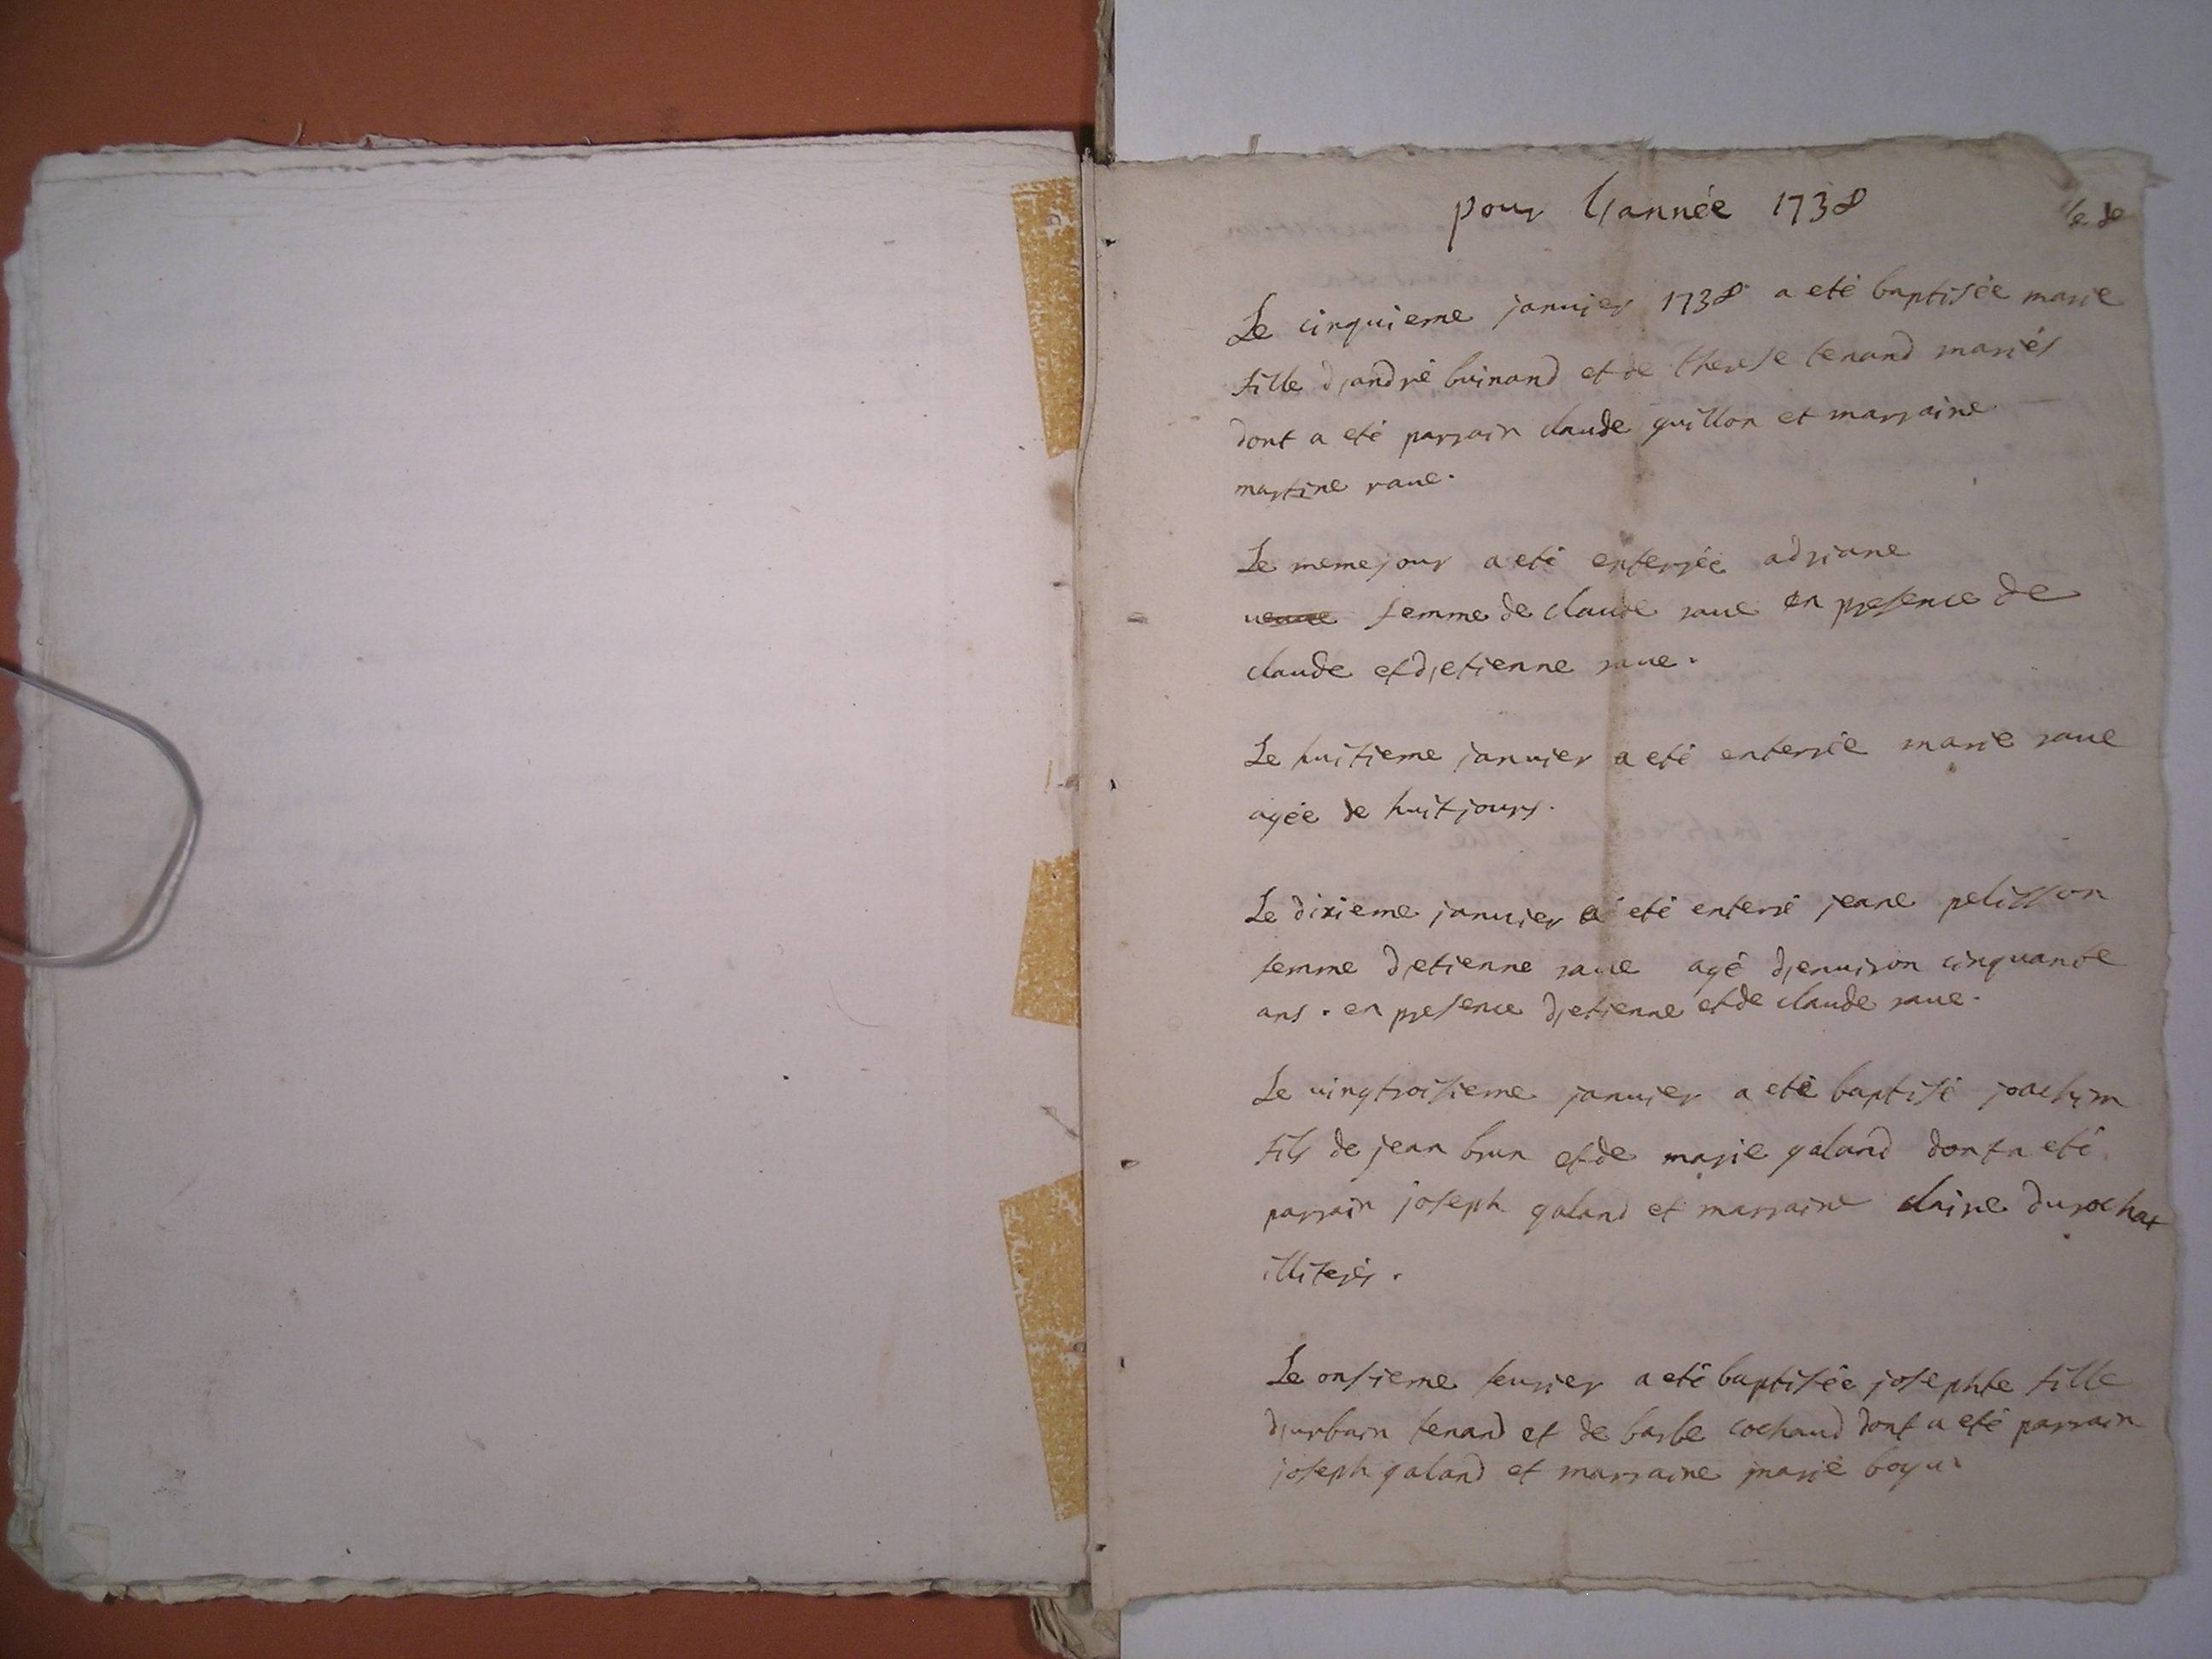 pour l'année 1738
Le cinquieme januier 1738 a eté baptisée marie
fille d'andré buinand et de therese tenand mariés
dont a eté parrain claude guillon et marraine
martine raue.
Le meme jour a eté enterrée adriane
femme de claude raue en presence de
claude et d'etienne raue.
Le huitieme januier a eté enterrée marie raue
agée de huit jours.
Le dixieme januier a eté enteré jeane pelisson
femme d'etienne raue agé d'enuiron cinquante
ans. en presence d'etienne et de claude raue.
Le uingtroisieme januier a eté baptisé joachim
fils de jean brun et de marie galand dont a eté
parrain joseph galand et marraine claire durochat
illiterés.
Le onsieme feurier a eté baptisée josephte fille
d'urbain tenand et de barbe cochaud dont a eté parrain
joseph galand et marraine marie